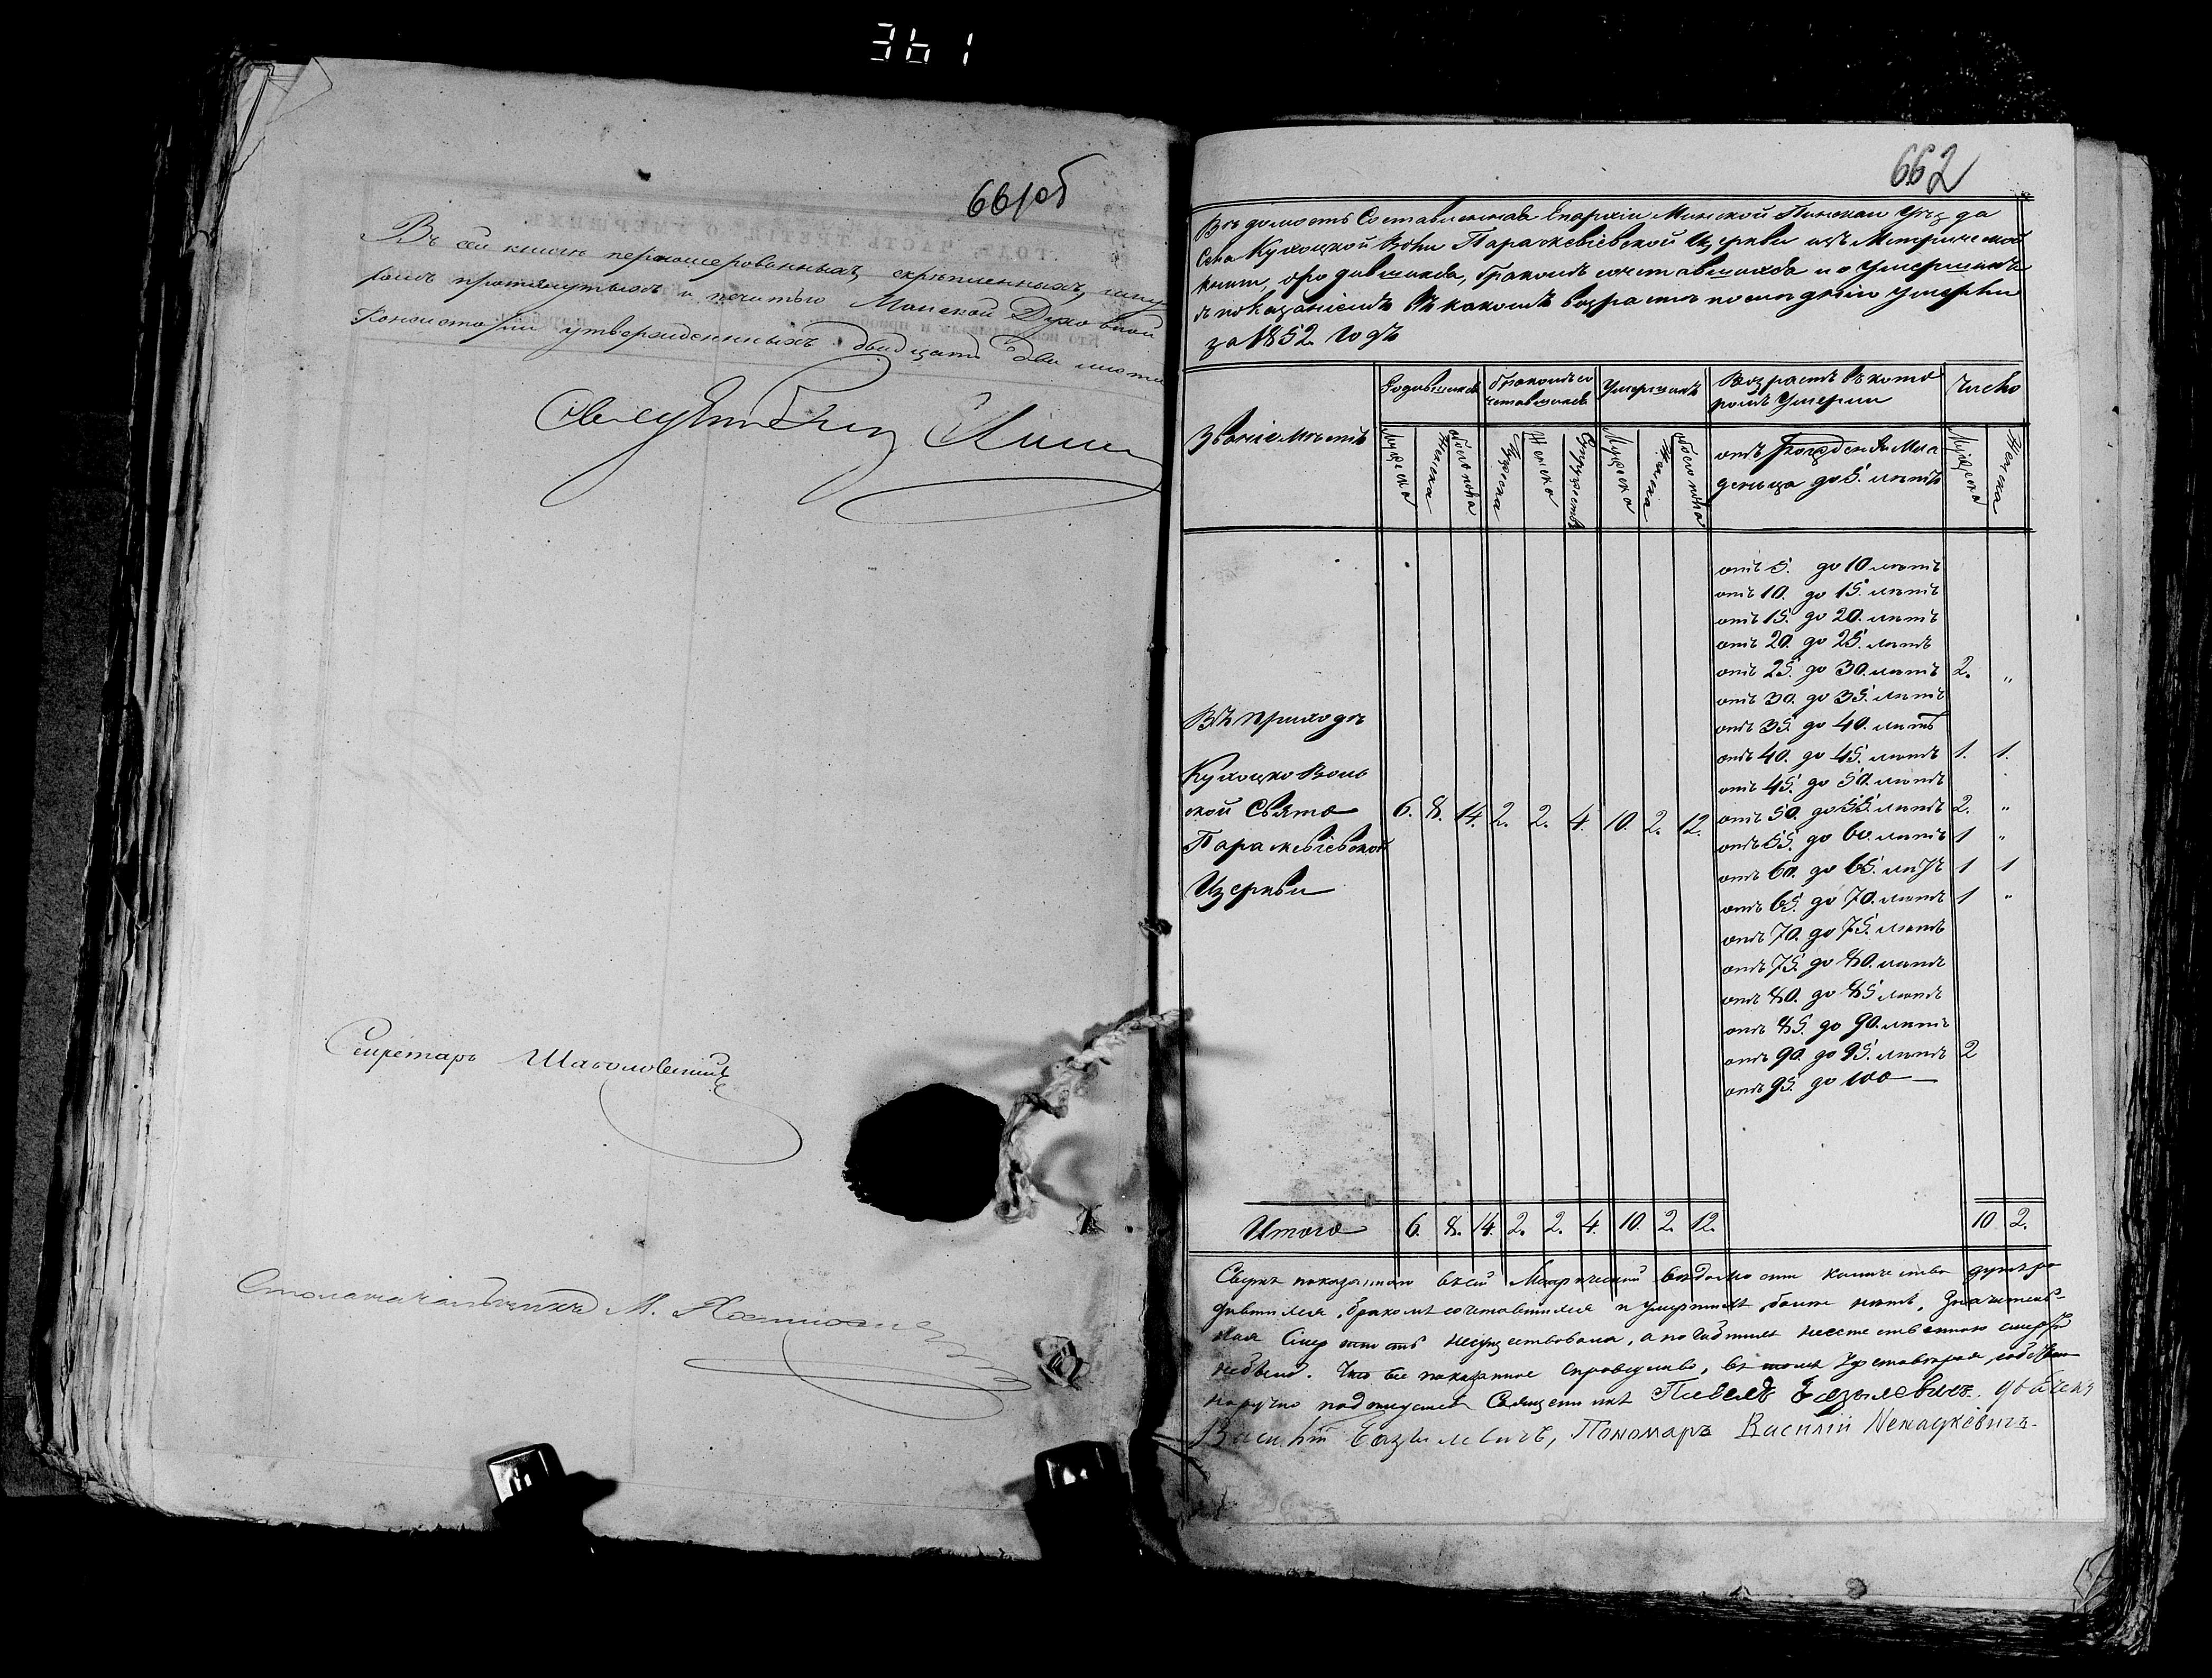 361
661об
Въ сей книгѣ перенумерованныхъ, скрѣпленныхъ, шну
ромъ протянутыхъ и печатью Минской Духовной
Консисторіи утвержденныхъ двадцать два листа
Секретарь
Столоначальникъ М.
662
Вѣдомость Составленная Епархіи Минской Пинскаго Уѣзда
Села Кухоцкой Воли Параскевіевской Церкви изъ Метрической
книги, о родившихся, бракомъ сочетавшихся и о Умершихъ
съ показаніемъ въ какомъ возрастѣ послѣдніи умерли
за 1852. годъ
Званіе мѣстъ
Родившихся
бракомъ со
четавшихся
Умершихъ
Возрастъ въ кото
ромъ Умерли
Число
Мужеска
Женска
обоего пола
Мужеска
Женска
Супружествъ
Мужеска
Женска
обоего пола
отъ Рожденія Мла
денца до 5. лѣтъ
Мужеска
Женска
отъ 5. до 10 лѣтъ
отъ 10. до 15. лѣтъ
отъ 15. до 20. лѣтъ
отъ 20. до 25. лѣтъ
отъ 25. до 30. лѣтъ 2. "
отъ 30. до 35. лѣтъ
отъ 35. до 40. лѣтъ
отъ 40. до 45. лѣтъ 1. 1.
отъ 45. до 50. лѣтъ
отъ 50. до 55. лѣтъ 2. "
отъ 55. до 60. лѣтъ 1 "
отъ 60. до 65. лѣтъ 1 1
отъ 65. до 70. лѣтъ 1 "
отъ 70. до 75. лѣтъ
отъ 75. до 80. лѣтъ
отъ 80. до 85 лѣтъ
отъ 85. до 90. лѣтъ
отъ 90. до 95. лѣтъ 2
отъ 95. до 100 —
Въ приходѣ
Кухоцко Воль
ской Свято 6. 8. 14. 2. 2. 4. 10. 2. 12.
Параскевіевской
Церкви
Итого 6. 8. 14. 2. 2. 4. 10. 2. 12. 10 2.
Сверхъ показаннаго въ сей Метрической вѣдомости количества душъ ро
дившихся, бракомъ сочетавшихся и умершихъ болѣе нѣтъ, Значитель-
ная Смертность несуществовала, а погибшихъ неестественною смертію
небыло. Что все показанное справедливо, въ томъ Удостовѣряя, собствен
норучно подписуемся Священникъ Павелъ Базылевичъ. дьячекъ
Василій Базылевичъ, Пономарь Василій